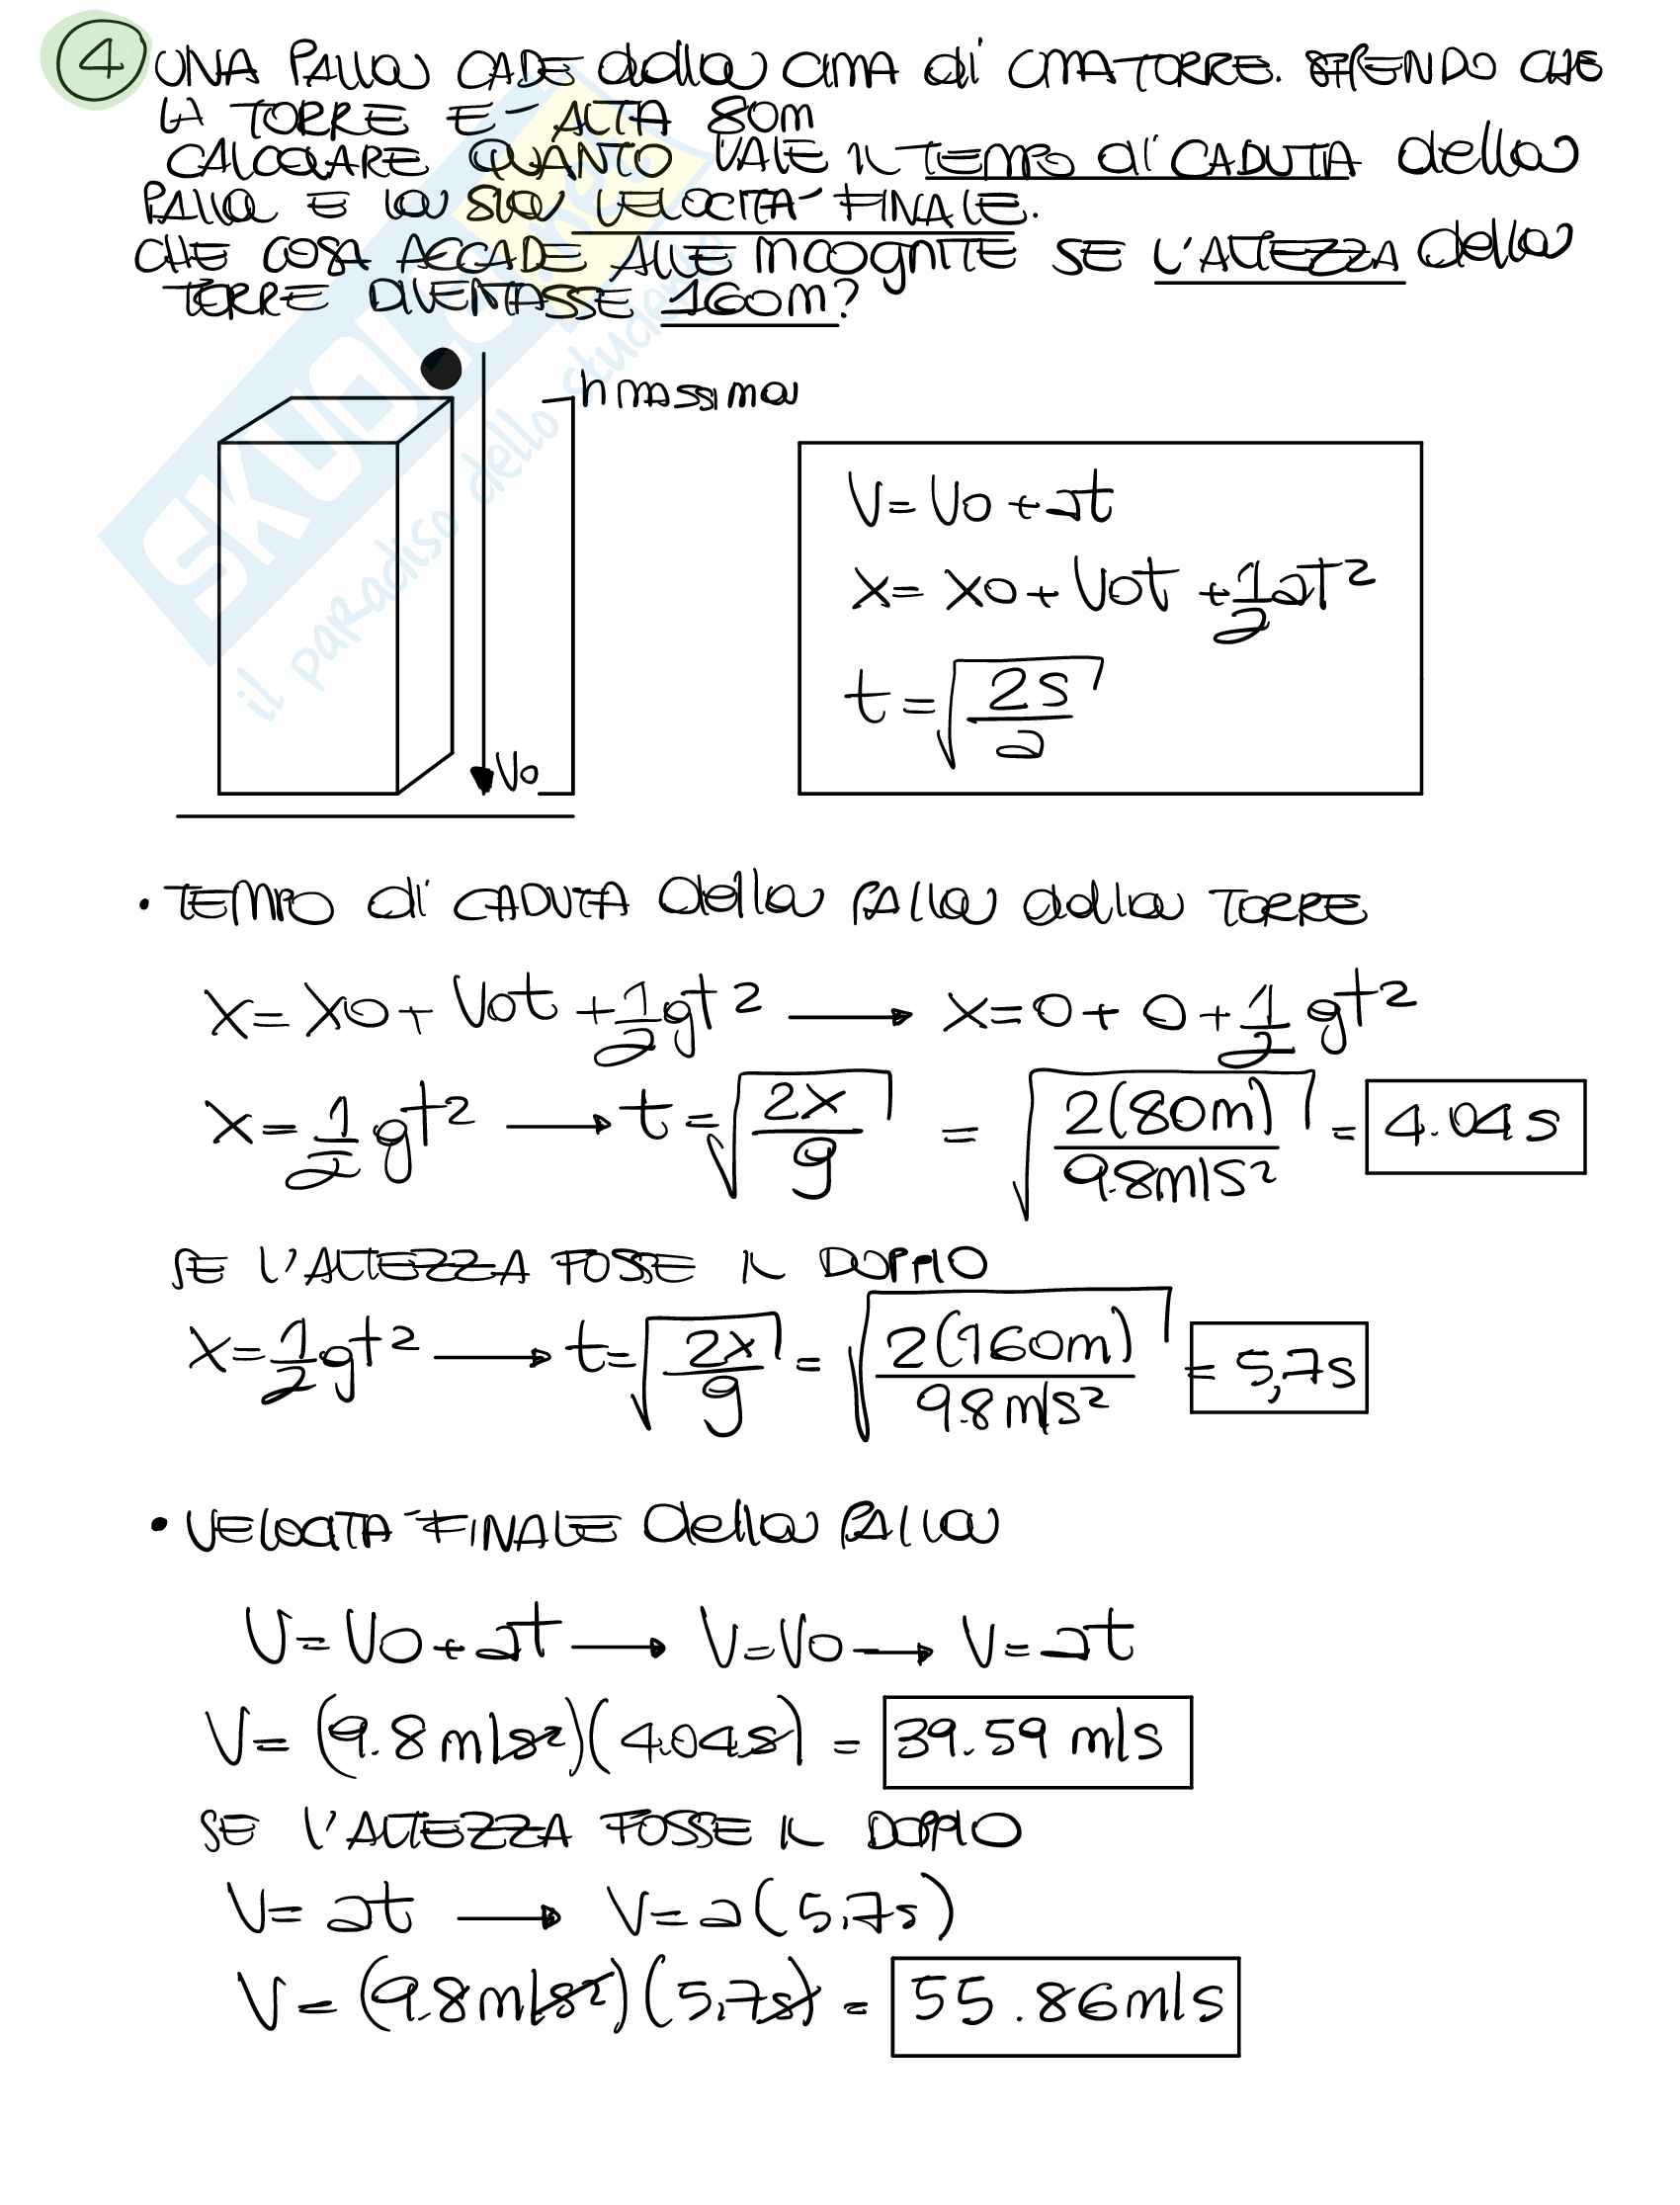 4 UNA PALLA CADE dalla CIMA di UNA TORRE. SAPENDO CHE
LA TORRE E' ALTA 80m
CALCOLARE QUANTO VALE IL TEMPO di CADUTA della
PALLA E la SUA VELOCITA' FINALE.
CHE COSA ACCADE ALLE INCOGNITE SE L'ALTEZZA della
TORRE DIVENTASSE 160m?
h massima
V = V0 + at
x = x0 + V0t + 1/2 at²
t = √(2s/a)
V0
SKUOLA.net
il paradiso dello studente
• TEMPO di CADUTA della PALLA dalla TORRE
x = x0 + V0t + 1/2 gt² → x = 0 + 0 + 1/2 gt²
x = 1/2 gt² → t = √(2x/g) = √(2(80m)/9.8m/s²) = 4.04 s
SE L'ALTEZZA FOSSE IL DOPPIO
x = 1/2 gt² → t = √(2x/g) = √(2(160m)/9.8m/s²) = 5,7s
• VELOCITA' FINALE della PALLA
V = V0 + at → V = V0 → V = at
V = (9.8 m/s²)(4.04s) = 39.59 m/s
SE L'ALTEZZA FOSSE IL DOPPIO
V = at → V = a(5,7s)
V = (9.8m/s²)(5,7s) = 55.86m/s